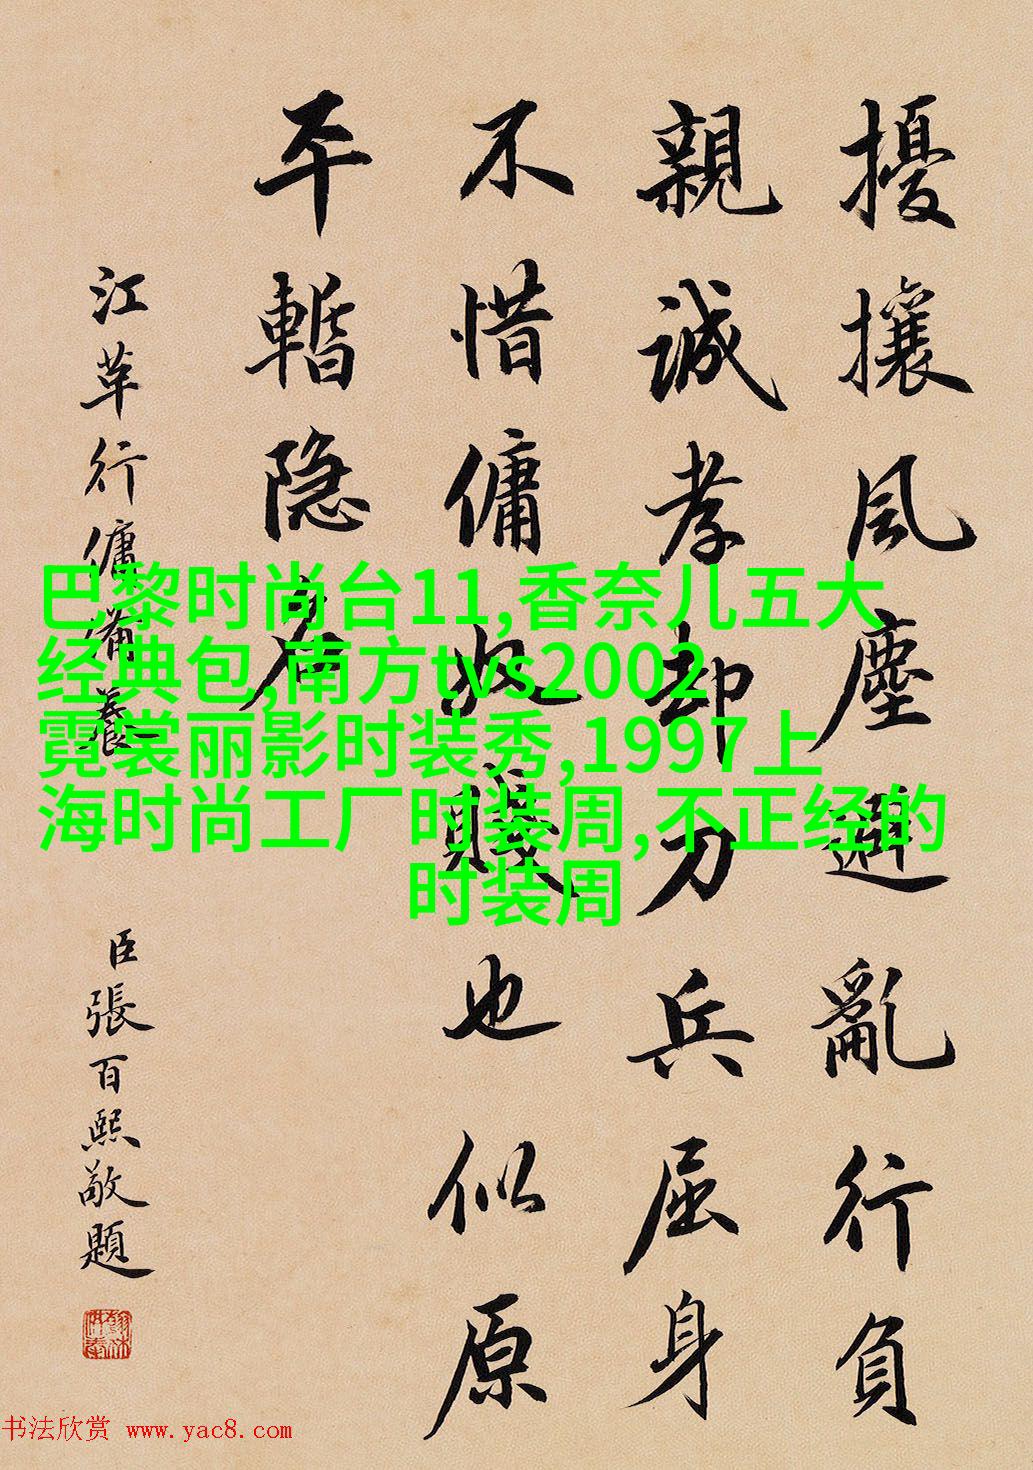 擾攘風塵避亂行負
親誠孝却刀兵屈身
不惜傭奴賤也似原
平暫隐名
江革行傭備養
臣張百熙敬題
巴黎时尚台11,香奈儿五大
经典包,南方tvs2002
霓裳丽影时装秀,1997上
海时尚工厂时装周,不正经的
时装周
书法欣赏 www.yac8.com